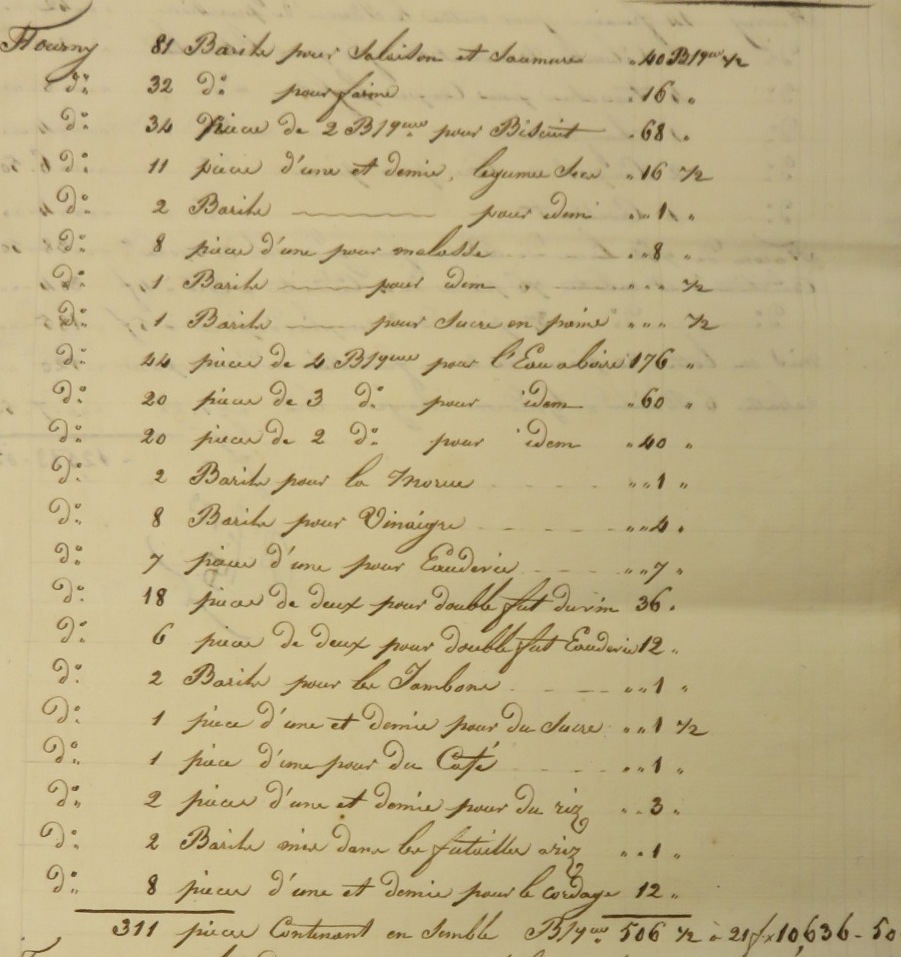 Fourny 81 Barils pour Salaison et Saumure „ 40 B/ques 1/2
do. 32 do. pour farine „ 16 „
do. 34 Pieces de 2 B/ques pour Biscuit „ 68 „
do. 11 pieces d'une et demie, legumes Secs „ 16 1/2
do. 2 Barils pour idem „ „ 1 „
do. 8 pieces d'une pour malasse „ „ 8 „
do. 1 Barils pour idem „ „ „ 1/2
do. 1 Barils pour Sucre en „ „ „ 1/2
do. 44 pieces de 4 B/ques pour l'Eau a boire 176 „
do. 20 pieces de 3 do. pour idem „ 60 „
do. 20 pieces de 2 do. pour idem „ 40 „
do. 2 Barils pour la Morue „ „ 1 „
do. 8 Barils pour Vinaigre „ „ 4 „
do. 7 pieces d'une pour Eaudevie „ „ 7 „
do. 18 pieces de deux pour double fut du vin 36 „
do. 6 pieces de deux pour double fut Eaudevie 12 „
do. 2 Barils pour les Jambons „ „ 1 „
do. 1 piece d'une et demie pour du Sucre „ „ 1 1/2
do. 1 piece d'une pour du Café „ „ 1 „
do. 2 pieces d'une et demie pour du riz „ „ 3 „
do. 2 Barils mis dans les futailles a riz „ „ 1 „
do. 8 pieces d'une et demie pour le cordage 12 „
311 pieces Contenant en semble B/ques 506 1/2 a 21 f 10,636 - 50